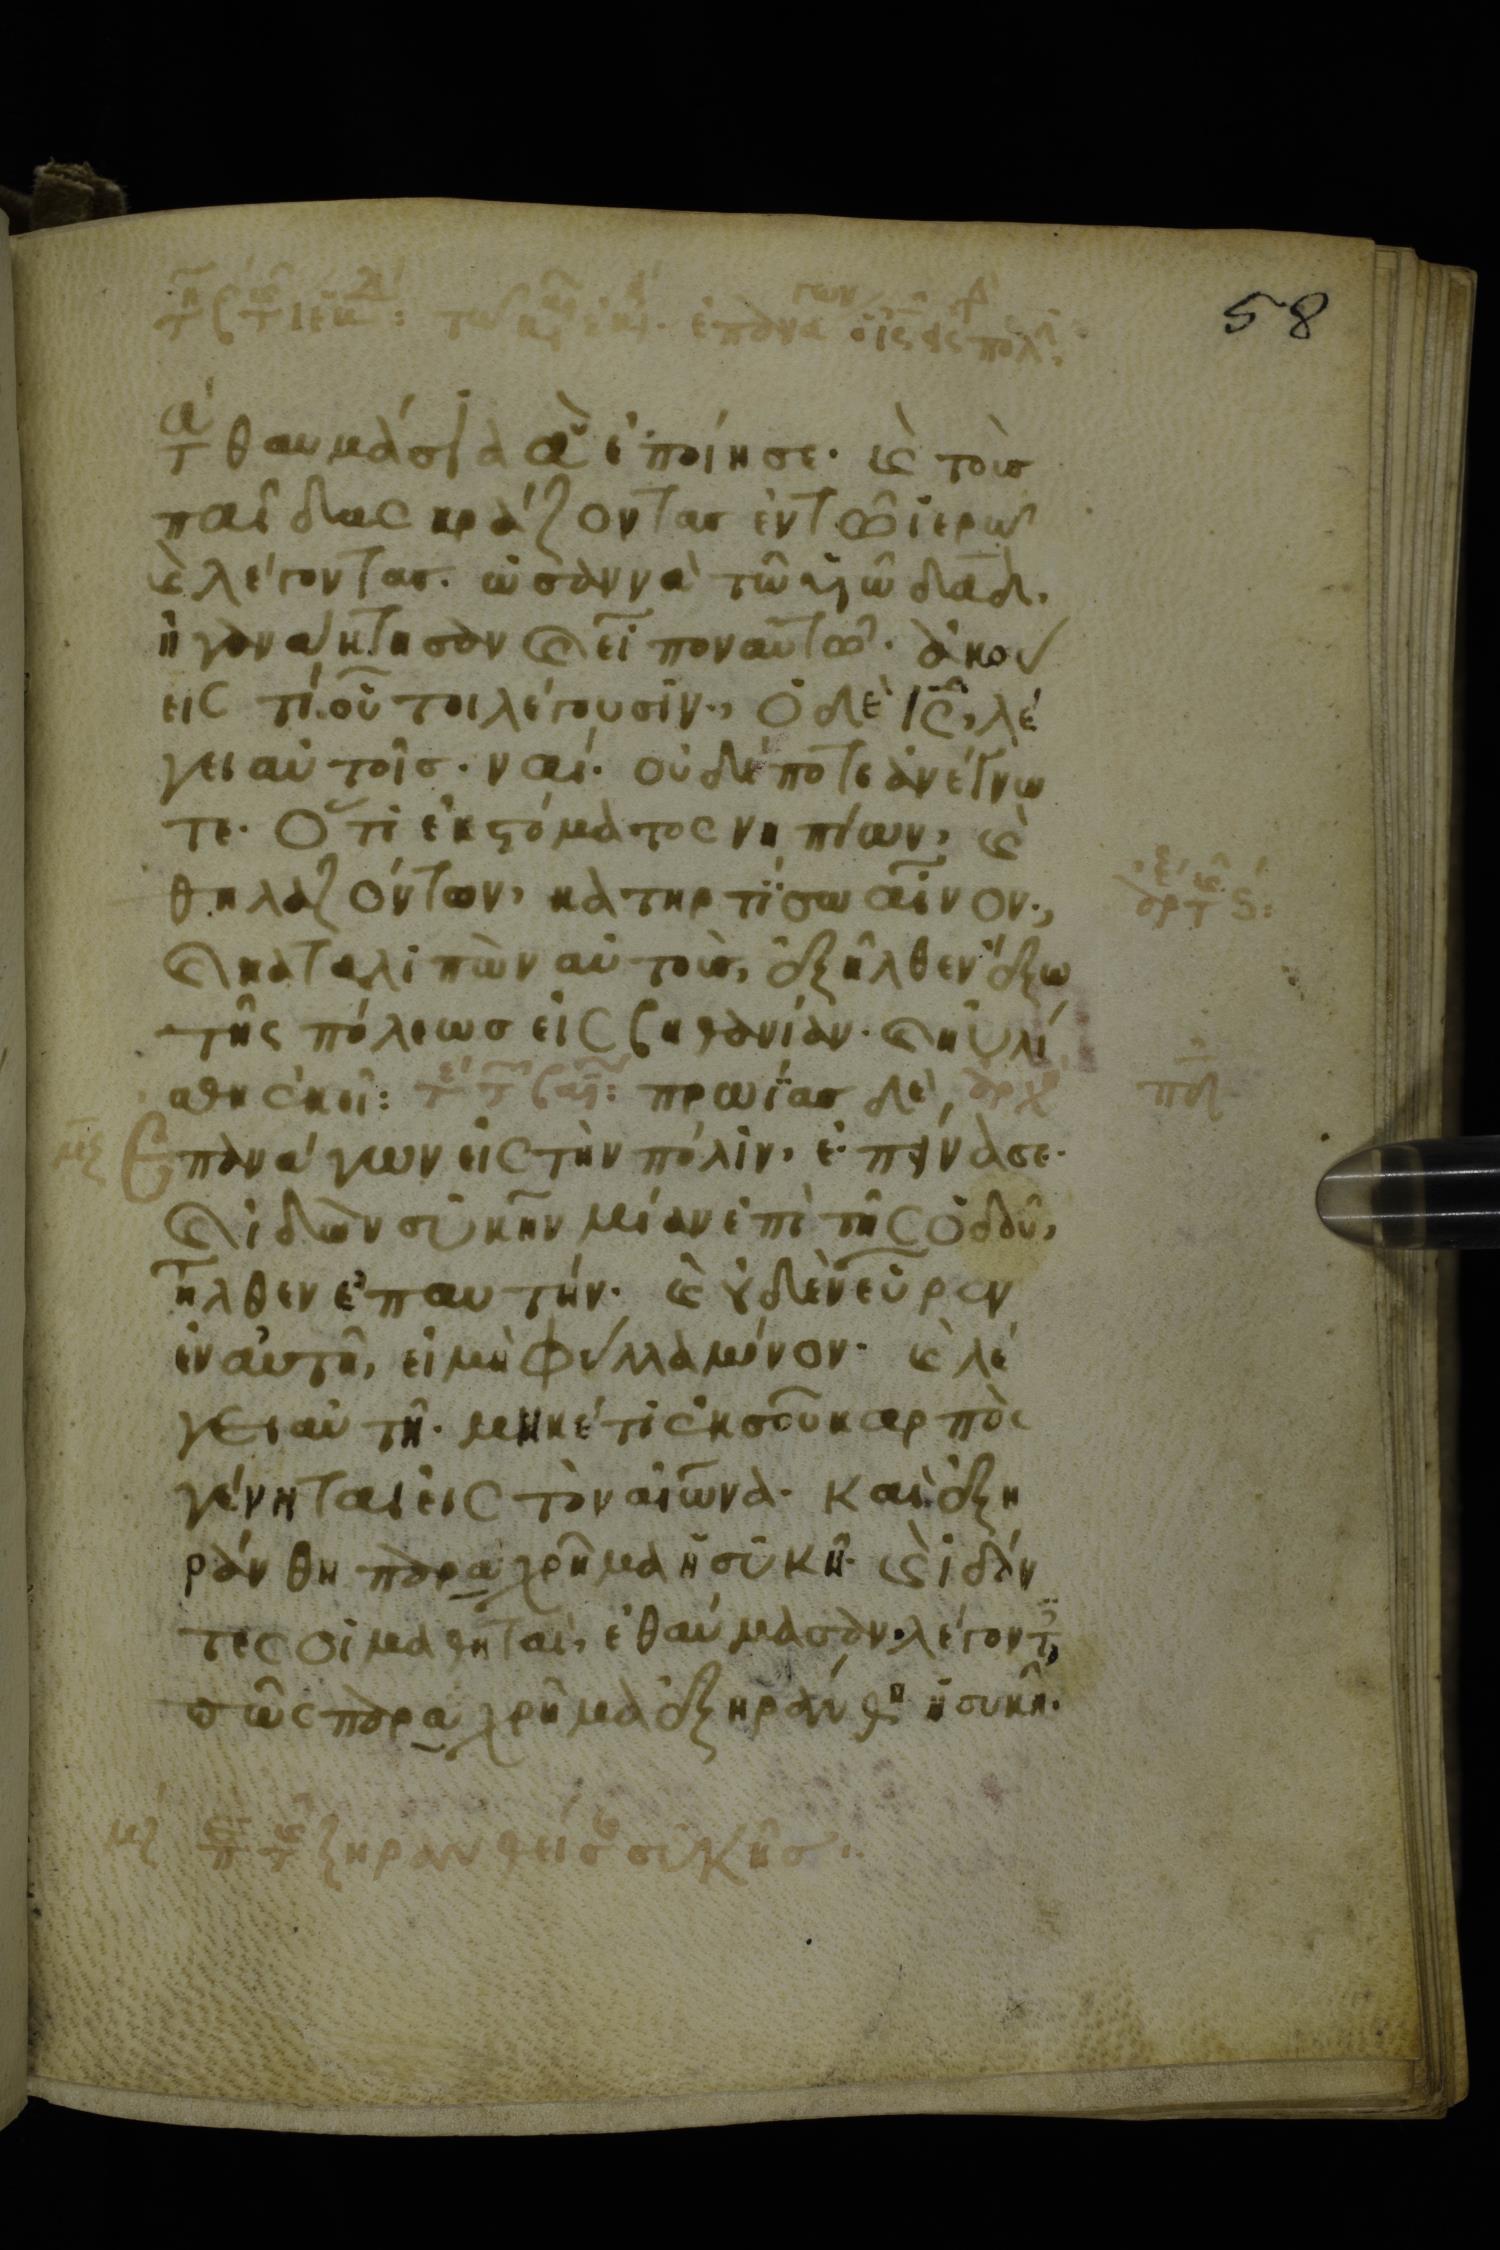 58
τὰ θαυμάσια ἃ ἐποίησε· καὶ τοὺσ
παῖδας κράζοντασ ἐν τῶ ἱερῶ
καὶ λέγοντασ. ὡσαννὰ τῶ υἱῶ δαδ.
ἠγανάκτησαν καὶ εἶπον αὐτῶ· ἀκού
εις τί οὗτοι λέγουσιν., ὁ δὲ ις, λέ
γει αὐτοῖσ· ναί· οὐδέποτε ἀνέγνω
τε· ὅτι ἐκ στόματος νηπίων, καὶ
θηλαζόντων, κατηρτίσω αἶνον.,
καὶ καταλιπὼν αὐτοὺσ, ἐξῆλθεν ἔξω
τῆς πόλεωσ εἰς βηθανίαν· καὶ ηὐλί
σθη ἐκεῖ: πρωΐασ δὲ, ἀρχ
ἐπανάγων εἰς τὴν πόλιν, ἐπείνασε·
καὶ ἰδὼν συκῆν μίαν ἐπὶ τῆς ὁδοῦ,
ἦλθεν ἐπ αυτήν· καὶ οὐδὲν εὗρεν
ἐν αὐτῆ, εἰ μὴ φύλλα μόνον· καὶ λέ
γει αὐτῆ· μηκέτι ἐκ σοῦ καρπὸς
γένηται εἰς τὸν αἰῶνα· Καὶ ἐξη
ράνθη παραχρῆμα ἡ συκῆ· καὶ ἰδόν
τες οἱ μαθηταὶ, ἐθαύμασαν, λέγοντ,
πῶς παραχρῆμα ἐξηράνθη ἡ συκῆ·
ξηρανθείσ συκῆσ·